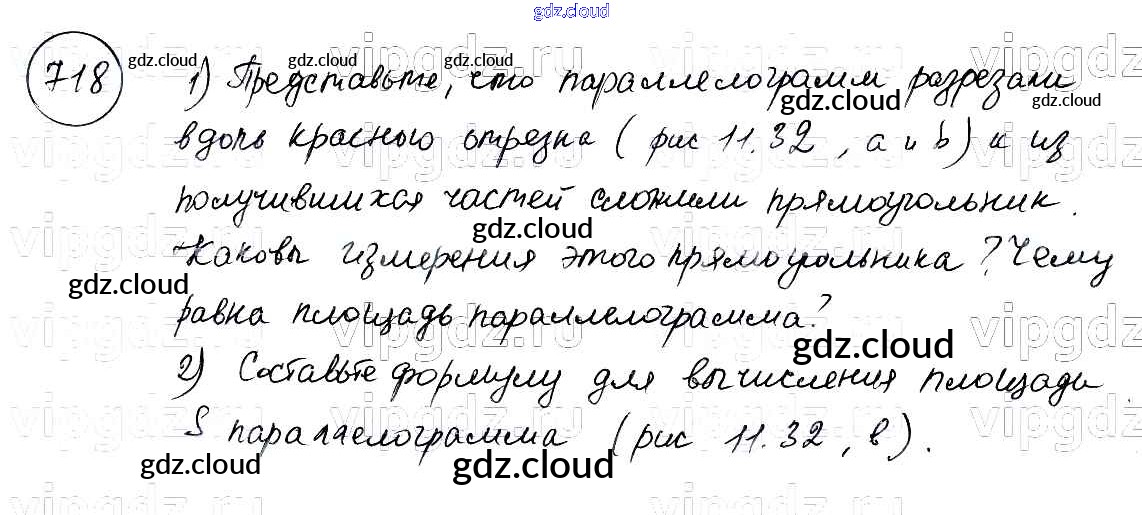 gdz.cloud
vipgdz.ru vipgdz.ru vipgdz.ru vipgdz
718
gdz.cloud gdz.cloud gdz.cloud gdz.cloud
1) Представьте, что параллелограмм разрезали
gdz.cloud gdz.cloud
вдоль красного отрезка (рис 11.32, а и b) и из
получившихся частей сложили прямоугольник.
gdz.cloud
Каковы измерения этого прямоугольника? Чему
gdz.cloud
равна площадь параллелограмма?
gdz.cloud
2) Составьте формулу для вычисления площади
S параллелограмма (рис 11.32, в).
gdz.cloud gdz.cloud